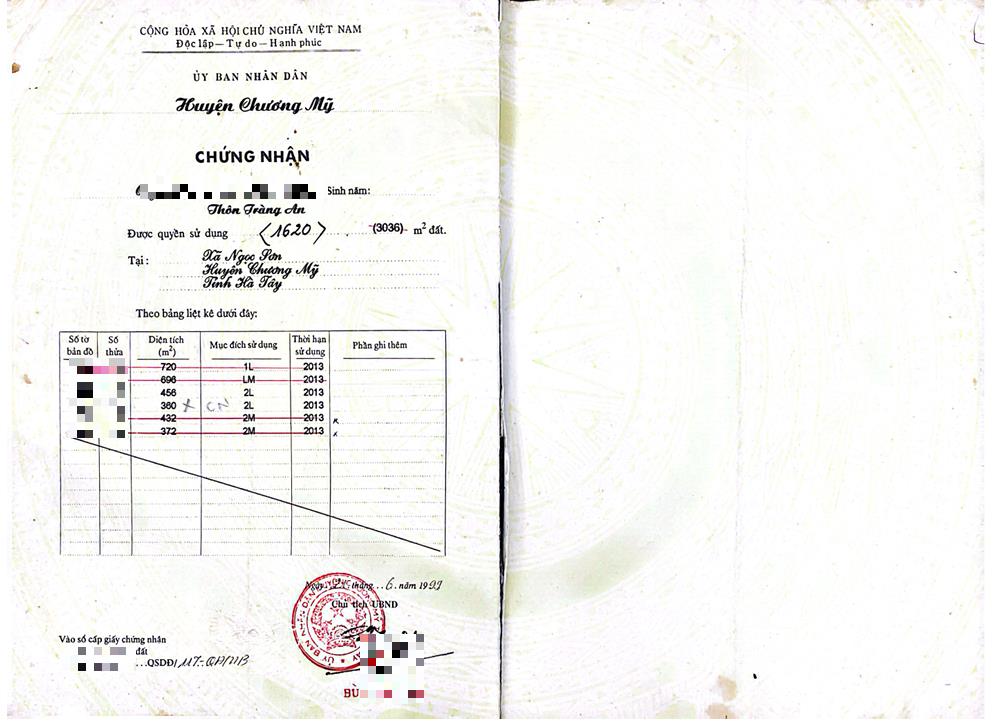 CỘNG HÒA XÃ HỘI CHỦ NGHĨA VIỆT NAM
Độc lập — Tự do — Hạnh phúc
ỦY BAN NHÂN DÂN
Huyện Chương Mỹ
CHỨNG NHẬN
Sinh năm:
Thôn Tràng An
Được quyền sử dụng (1620) (3036) m² đất.
Tại: Xã Ngọc Sơn
Huyện Chương Mỹ
Tỉnh Hà Tây
Theo bảng liệt kê dưới đây:
Số tờ bản đồ Số thửa Diện tích (m²) Mục đích sử dụng Thời hạn sử dụng Phần ghi thêm
720 1L 2013
696 LM 2013
456 2L 2013
360 x CN 2L 2013
432 2M 2013 x
372 2M 2013 x
Ngày tháng 6 năm 1999
Chủ tịch UBND
Vào sổ cấp giấy chứng nhận
đất
QSDĐ/
BÙ